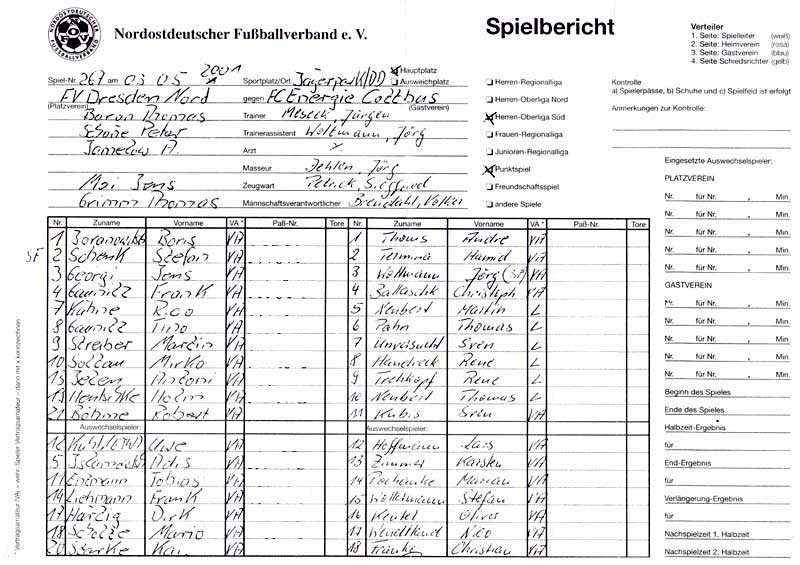 NORDOSTDEUTSCHER FUSSBALLVERBAND
Nordostdeutscher Fußballverband e. V.
Spielbericht
Verteiler
1. Seite: Spielleiter (weiß)
2. Seite: Heimverein (rosa)
3. Seite: Gastverein (blau)
4. Seite Schiedsrichter (gelb)
Spiel-Nr. 267 am 03 05 2001 Sportplatz/Ort Jägerpark/DD Hauptplatz
Ausweichplatz
FV Dresden Nord gegen FC Energie Cottbus
(Platzverein) (Gastverein)
Baron Thomas Trainer Meseck, Jürgen
Schöne Peter Trainerassistent Woltmann, Jörg
Jamelow A. Arzt
Masseur Dehlen, Jörg
Mai Jens Zeugwart Petrick, Siegfried
Grimm Thomas Mannschaftsverantwortlicher Brendahl, Volker
Herren-Regionalliga
Herren-Oberliga Nord
Herren-Oberliga Süd
Frauen-Regionalliga
Junioren-Regionalliga
Punktspiel
Freundschaftsspiel
andere Spiele
Kontrolle
a) Spielerpässe, b) Schuhe und c) Spielfeld ist erfolgt
Anmerkungen zur Kontrolle:
Nr. Zuname Vorname VA * Paß-Nr. Tore Nr. Zuname Vorname VA * Paß-Nr. Tore
1 Boris VA 1 Thoms Andre VA
SF 2 Schenk Stefan VA 2 Termina Hamid VA
3 Georgi Jens VA 3 Woltmann Jörg (SF) VA
4 Gaunitz Frank VA 4 Ballaschk Christoph VA
7 Kühne Rico VA 5 Neubert Martin L
8 Gaunitz Tino VA 6 Pahn Thomas L
9 Streiber Martin VA 7 Unversucht Sven L
10 Soltau Mirko VA 8 Handreck Rene L
15 Jelen Antoni VA 9 Trehkopf Rene L
13 Hentschke Holm VA 10 Neubert Thomas L
21 Böhme Robert VA 11 Kubis Sven VA
Auswechselspieler: Auswechselspieler:
12 Kühl (ETW) Uwe VA 12 Hoffmann Lars VA
5 Adis VA 13 Zimmer Karsten VA
11 Erdmann Tobias VA 14 Marian VA
14 Lichmann Frank VA 15 Stefan VA
17 Hartig Dirk VA 16 Keutel Oliver VA
18 Scholze Mario VA 17 Wendtland Rico VA
20 Starke Kai VA 18 Fränke Christian VA
Eingesetzte Auswechselspieler:
PLATZVEREIN
Nr. für Nr. , Min.
Nr. für Nr. , Min.
Nr. für Nr. , Min.
Nr. für Nr. , Min.
Nr. für Nr. , Min.
GASTVEREIN
Nr. für Nr. , Min.
Nr. für Nr. , Min.
Nr. für Nr. , Min.
Nr. für Nr. , Min.
Nr. für Nr. , Min.
Beginn des Spieles
Ende des Spieles
Halbzeit-Ergebnis
für
End-Ergebnis
für
Verlängerung-Ergebnis
für
Nachspielzeit 1. Halbzeit
Nachspielzeit 2. Halbzeit
* Vertragsamateur (VA) = wenn Spieler Vertragsamateur – dann mit x kennzeichnen